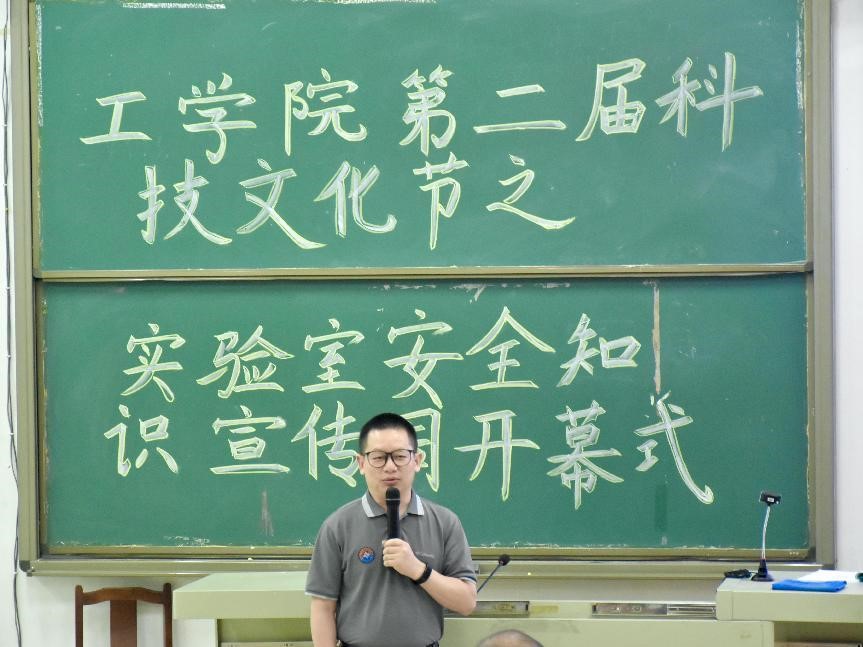 工学院第二届科
技文化节之
实验室安全知
识宣传周开幕式